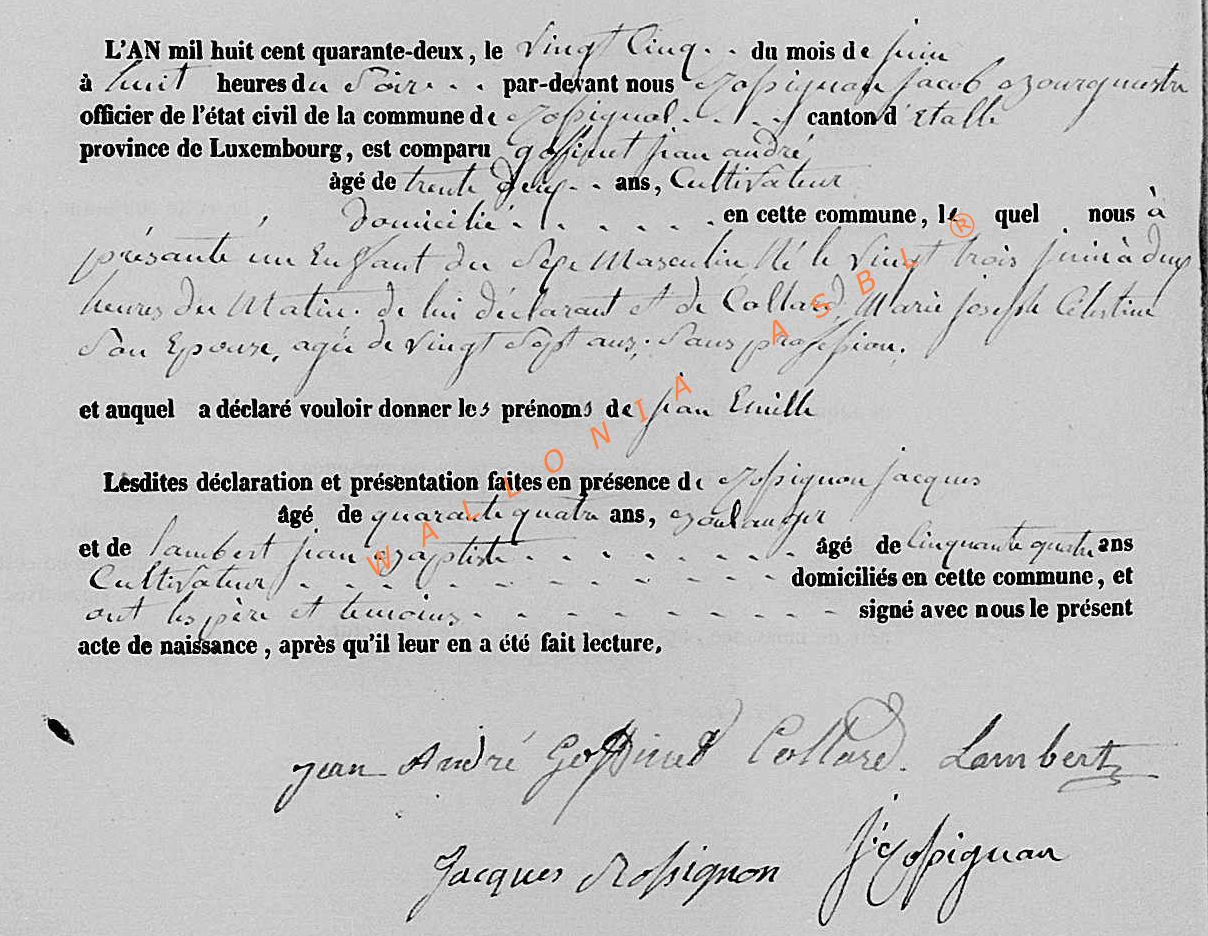 L'AN mil huit cent quarante-deux, le Vingt Cinq . . du mois de juin
à huit heures du Soir . . . par-devant nous Rossignon jacob Bourguestre
officier de l'état civil de la commune de Rossignol . . . . canton d'Etalle
province de Luxembourg, est comparu goffinet jean andré
âgé de trente deux . . ans, Cultivateur
Domicilié . . . . . . en cette commune, le quel nous à
présante un Enfant du Sexe Masculin Né le Vingt trois juin à deux
heures du Matin. de lui déclarant et de Collard, Marie joseph Célestine
Son Epouse, agée de Vingt Sept ans, Sans profession.
et auquel a déclaré vouloir donner les prénoms de jean Emille
Lesdites déclaration et présentation faites en présence de Rossignon jacques
âgé de quarante quatre ans, Boulanger
et de lambert jean Baptiste . . . . . . . . âgé de Cinquante quatre ans
Cultivateur . . . . . . . . . . . . . domiciliés en cette commune, et
ont les père et temoins . . . . . . . . . . signé avec nous le présent
acte de naissance, après qu'il leur en a été fait lecture,
jean André Goffinet Collard. Lambert
jacques Rossignon J. Rossignon
WALLONIA ASBL ®